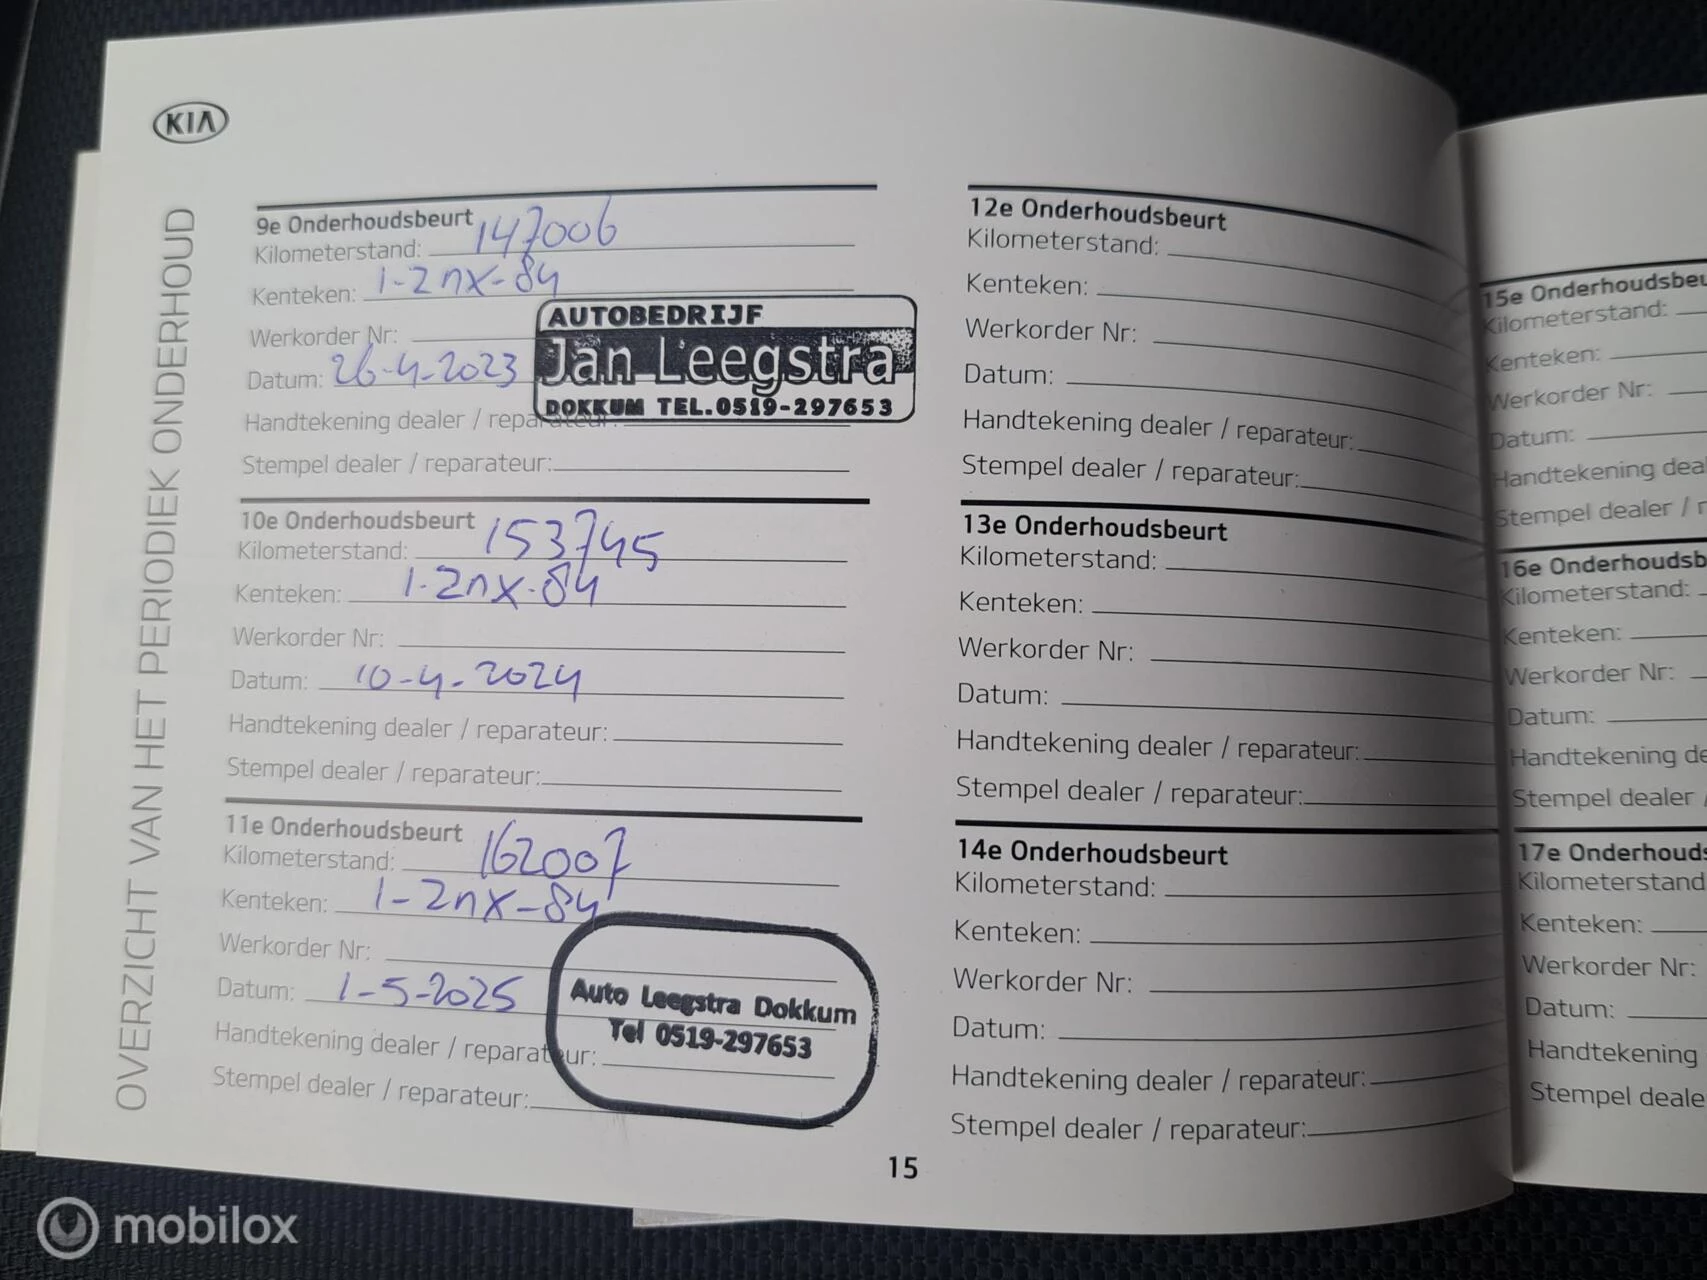 KIA
OVERZICHT VAN HET PERIODIEK ONDERHOUD
9e Onderhoudsbeurt
Kilometerstand: 147006
Kenteken: 1-2nx-84
Werkorder Nr:
Datum: 26-4-2023
Handtekening dealer / reparateur:
Stempel dealer / reparateur:
AUTOBEDRIJF
Jan Leegstra
DOKKUM TEL.0519-297653
10e Onderhoudsbeurt
Kilometerstand: 153745
Kenteken: 1-2nx-84
Werkorder Nr:
Datum: 10-4-2024
Handtekening dealer / reparateur:
Stempel dealer / reparateur:
11e Onderhoudsbeurt
Kilometerstand: 162007
Kenteken: 1-2nx-84
Werkorder Nr:
Datum: 1-5-2025
Handtekening dealer / reparateur:
Stempel dealer / reparateur:
Auto Leegstra Dokkum
Tel 0519-297653
12e Onderhoudsbeurt
Kilometerstand:
Kenteken:
Werkorder Nr:
Datum:
Handtekening dealer / reparateur:
Stempel dealer / reparateur:
13e Onderhoudsbeurt
Kilometerstand:
Kenteken:
Werkorder Nr:
Datum:
Handtekening dealer / reparateur:
Stempel dealer / reparateur:
14e Onderhoudsbeurt
Kilometerstand:
Kenteken:
Werkorder Nr:
Datum:
Handtekening dealer / reparateur:
Stempel dealer / reparateur:
15
15e Onderhoudsbeu
Kilometerstand:
Kenteken:
Werkorder Nr:
Datum:
Handtekening deal
Stempel dealer / r
16e Onderhoudsb
Kilometerstand:
Kenteken:
Werkorder Nr:
Datum:
Handtekening de
Stempel dealer /
17e Onderhouds
Kilometerstand
Kenteken:
Werkorder Nr:
Datum:
Handtekening
Stempel deale
mobilox